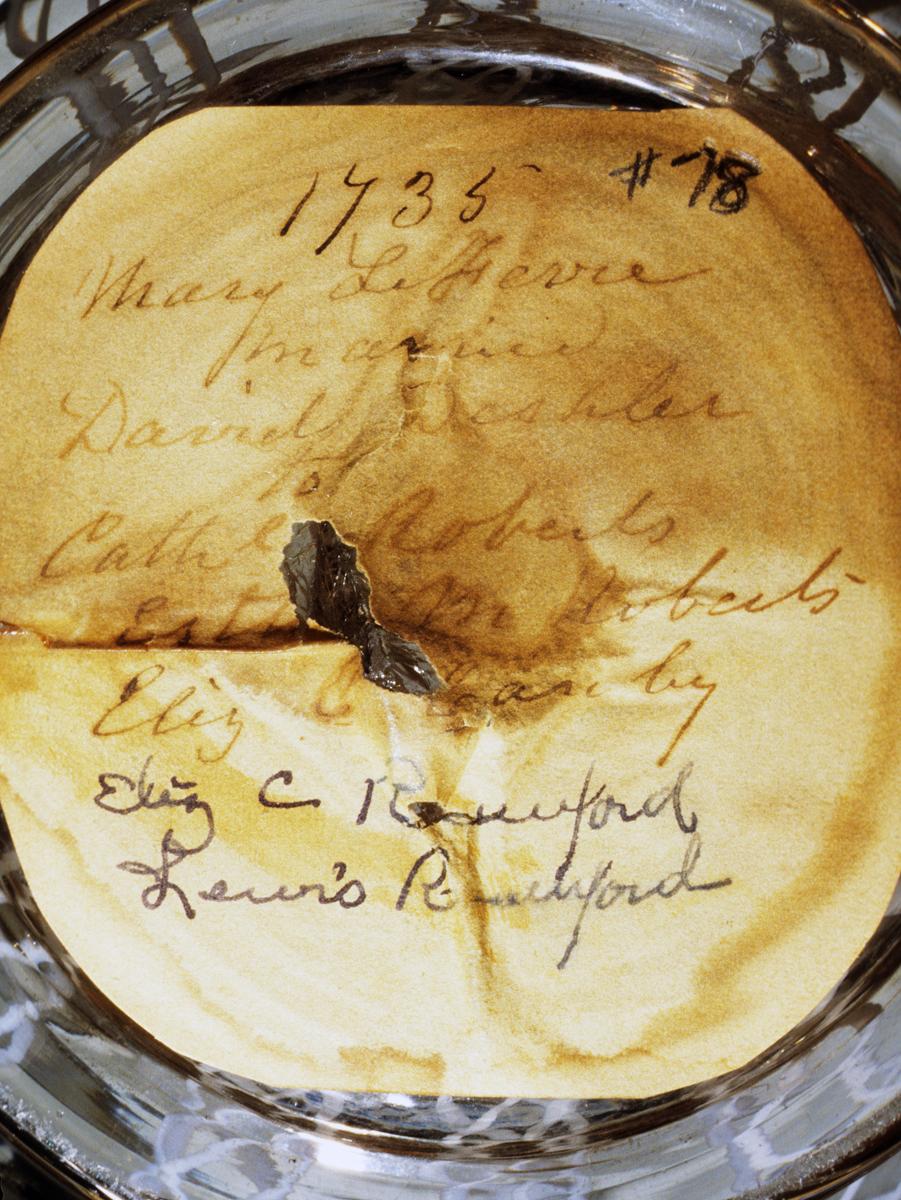 1735 #78
Mary LeFevre
married
David Deshler
to
Roberts
M Roberts
Eliz C Canby
Eliz C Rumford
Lewis Rumford